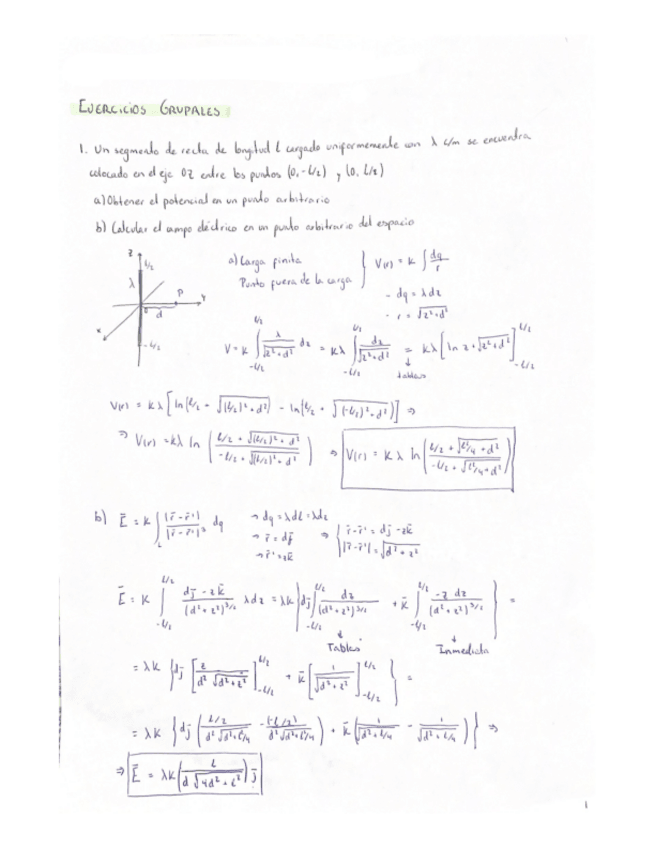 EJERCICIOS GRUPALES
1. Un segmento de recta de longitud L cargado uniformemente con λ c/m se encuentra
colocado en el eje OZ entre los puntos (0,-L/2) y (0, L/2)
a) Obtener el potencial en un punto arbitrario
b) Calcular el campo eléctrico en un punto arbitrario del espacio
z L/2 λ P Y 0 d x -L/2
a) Carga finita
Punto fuera de la carga } V(r) = K ∫ dq/r
- dq = λdz
- r = √(z²+d²)
V = K ∫_{-L/2}^{L/2} λ/√(z²+d²) dz = Kλ ∫_{-L/2}^{L/2} dz/√(z²+d²) = Kλ [ln z+√(z²+d²)]_{-L/2}^{L/2}
tablas
V(r) = Kλ [ln(L/2 + √((L/2)²+d²)) - ln(-L/2 + √((-L/2)²+d²))] ⇒
⇒ V(r) = Kλ ln (L/2 + √((L/2)²+d²) / -L/2 + √((L/2)²+d²)) ⇒ V(r) = Kλ ln (L/2 + √(L²/4+d²) / -L/2 + √(L²/4+d²))
b) E̅ = K ∫_L |r̅-r̅'|/|r̅-r̅'|³ dq → dq = λdL = λdz
→ r̅ = dj̅ ⇒ { r̅-r̅' = dj̅ - zk̅
→ r̅' = zk̅ |r̅-r̅'| = √(d²+z²)
E̅ = K ∫_{-L/2}^{L/2} (dj̅ - zk̅)/(d²+z²)^{3/2} λdz = λK { dj̅ ∫_{-L/2}^{L/2} dz/(d²+z²)^{3/2} + k̅ ∫_{-L/2}^{L/2} -z dz/(d²+z²)^{3/2} } =
Tablas Inmediata
= λK { dj̅ [z/(d²√(d²+z²))]_{-L/2}^{L/2} + k̅ [1/√(d²+z²)]_{-L/2}^{L/2} } =
= λK { dj̅ (L/2/(d²√(d²+L²/4)) - (-L/2)/(d²√(d²+L²/4))) + k̅ (1/√(d²+L/4) - 1/√(d²+L/4)) } ⇒
⇒ E̅ = λK (L/(d√(4d²+L²))) j̅
1